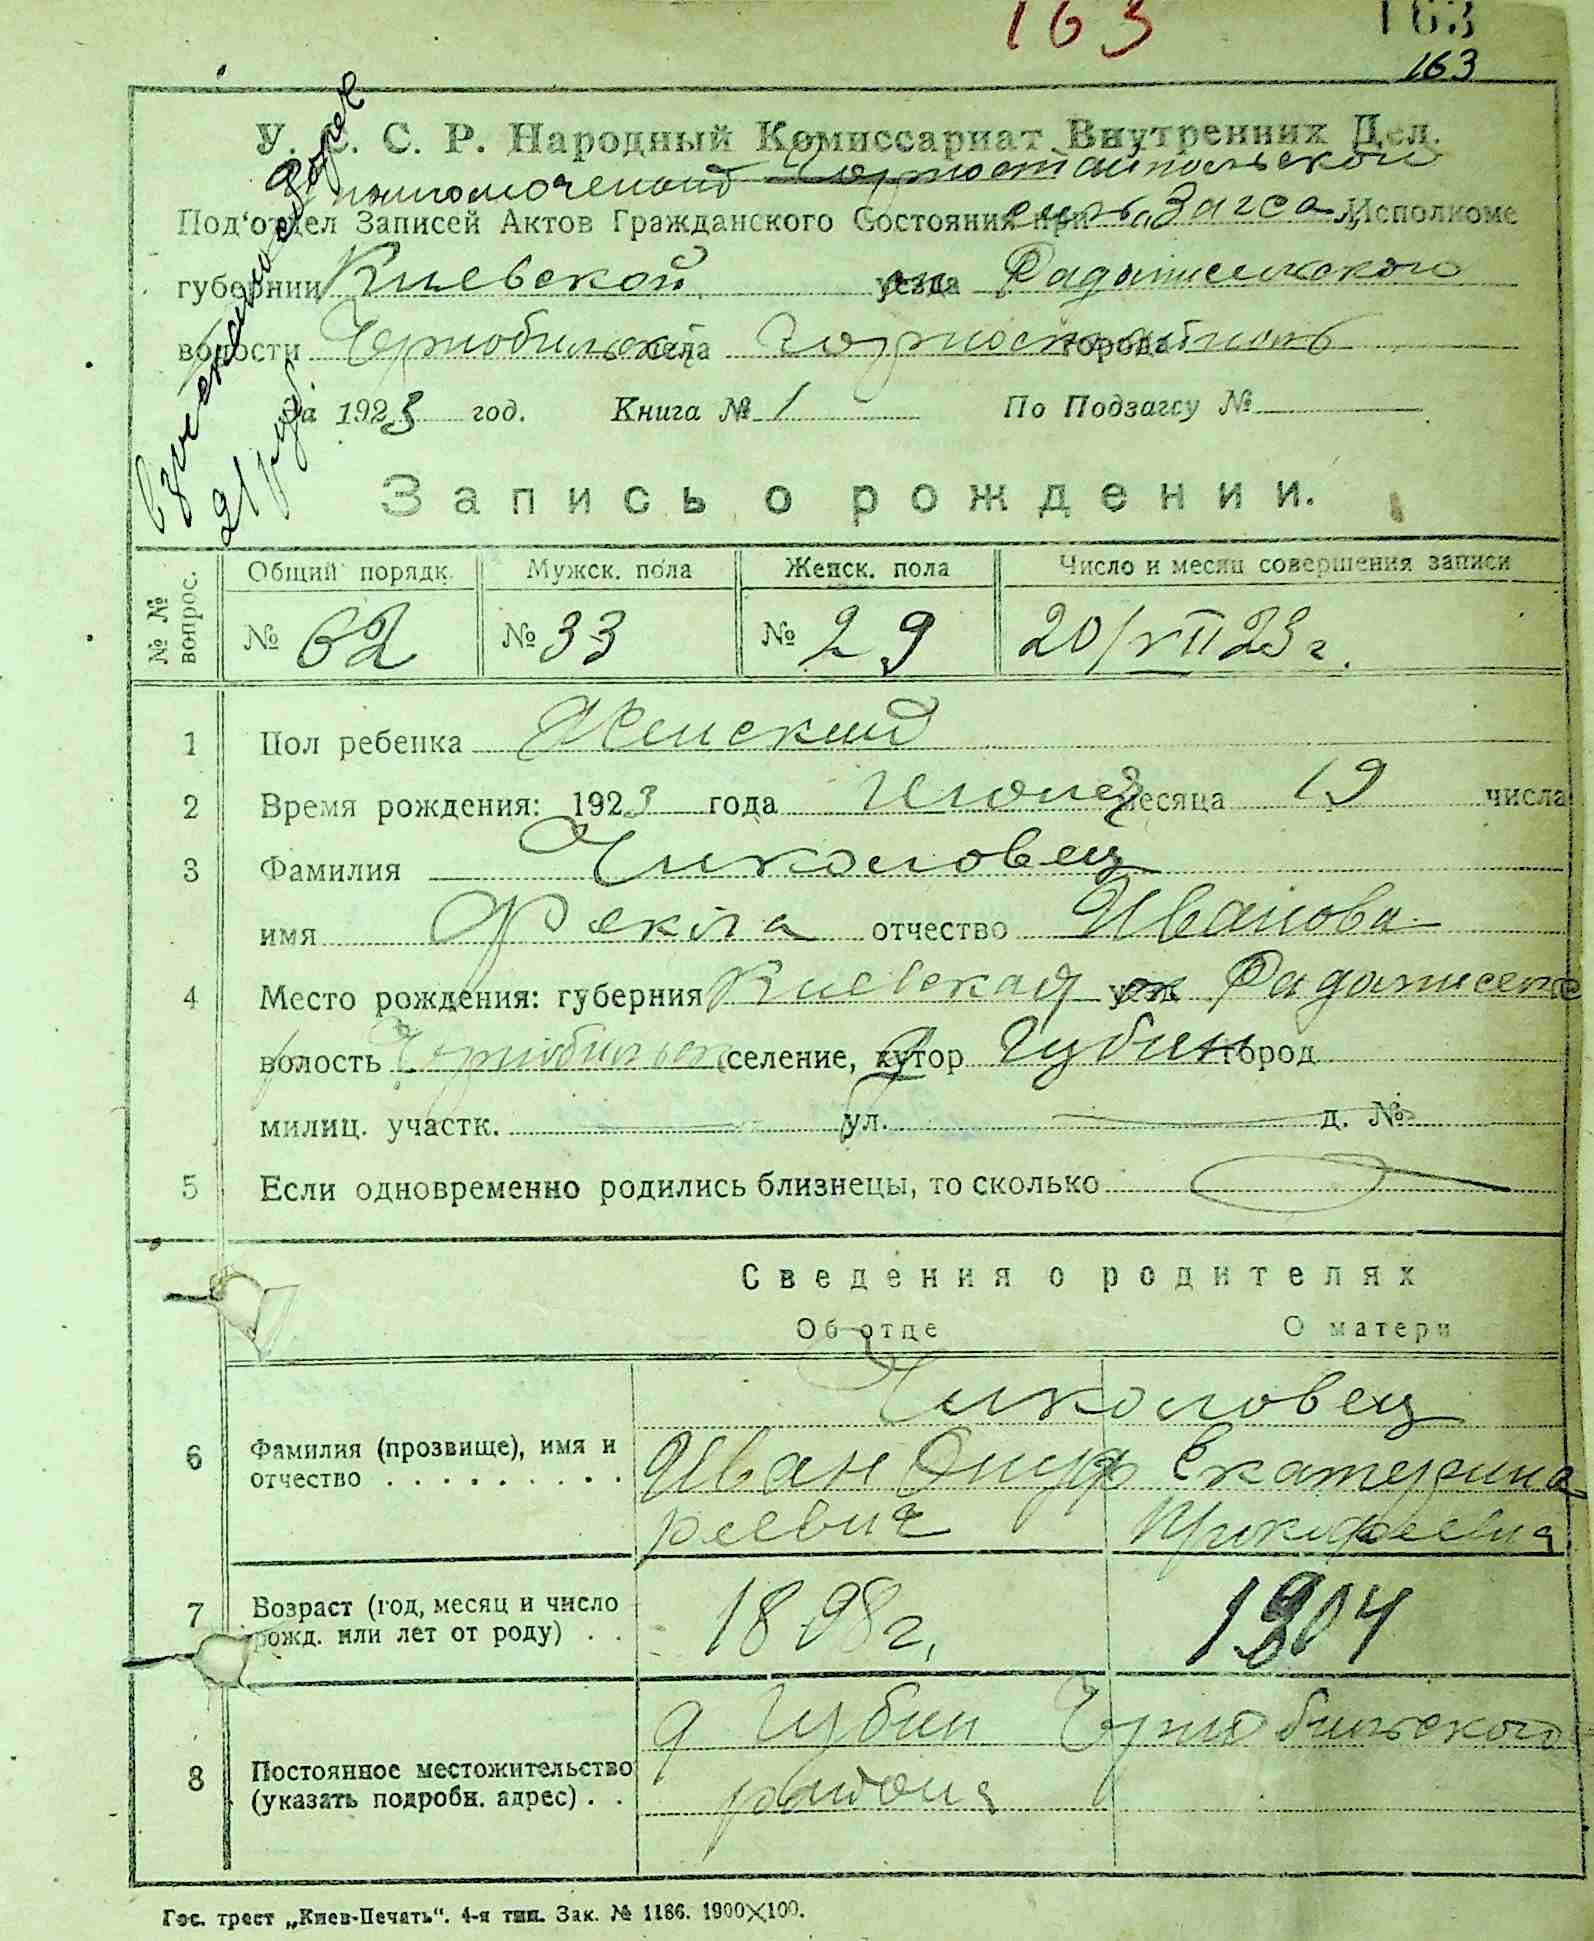 163 163
163
У. С. С. Р. Народный Комиссариат Внутренних Дел.
Горностайпольской
Под‘отдел Записей Актов Гражданского Состояния при сель. Загса Исполкоме
губернии Киевской уезда ок Радомисльского
волости Чернобильской села Горностайполь города
За 1923 год. Книга № 1 По Подзагсу №
взыскано
21 руб.
Запись о рождении.
№ № вопрос.
Общий порядк. Мужск. пола Женск. пола Число и месяц совершения записи
№ 62 № 33 № 29 20/VII 23 г.
1 Пол ребенка Женский
2 Время рождения: 1923 года Июля месяца 19 числа
3 Фамилия Чиколовец
имя Фекла отчество Иванова
4 Место рождения: губерния Киевская ок Радомисль
волость Чернобильск селение, хутор Губин город
милиц. участк. ул. д. №
5 Если одновременно родились близнецы, то сколько
Сведения о родителях
Об отце О матери
Чиколовец
6 Фамилия (прозвище), имя и Иван Онуф Екатерина
отчество . . . . . . . . . риевич
7 Возраст (год, месяц и число 1898 г. 1904
рожд. или лет от роду) . .
д Губин Чернобильского
8 Постоянное местожительство района
(указать подробн. адрес) . .
Гос. трест „Киев-Печать“. 4-я тип. Зак. № 1186. 1900×100.